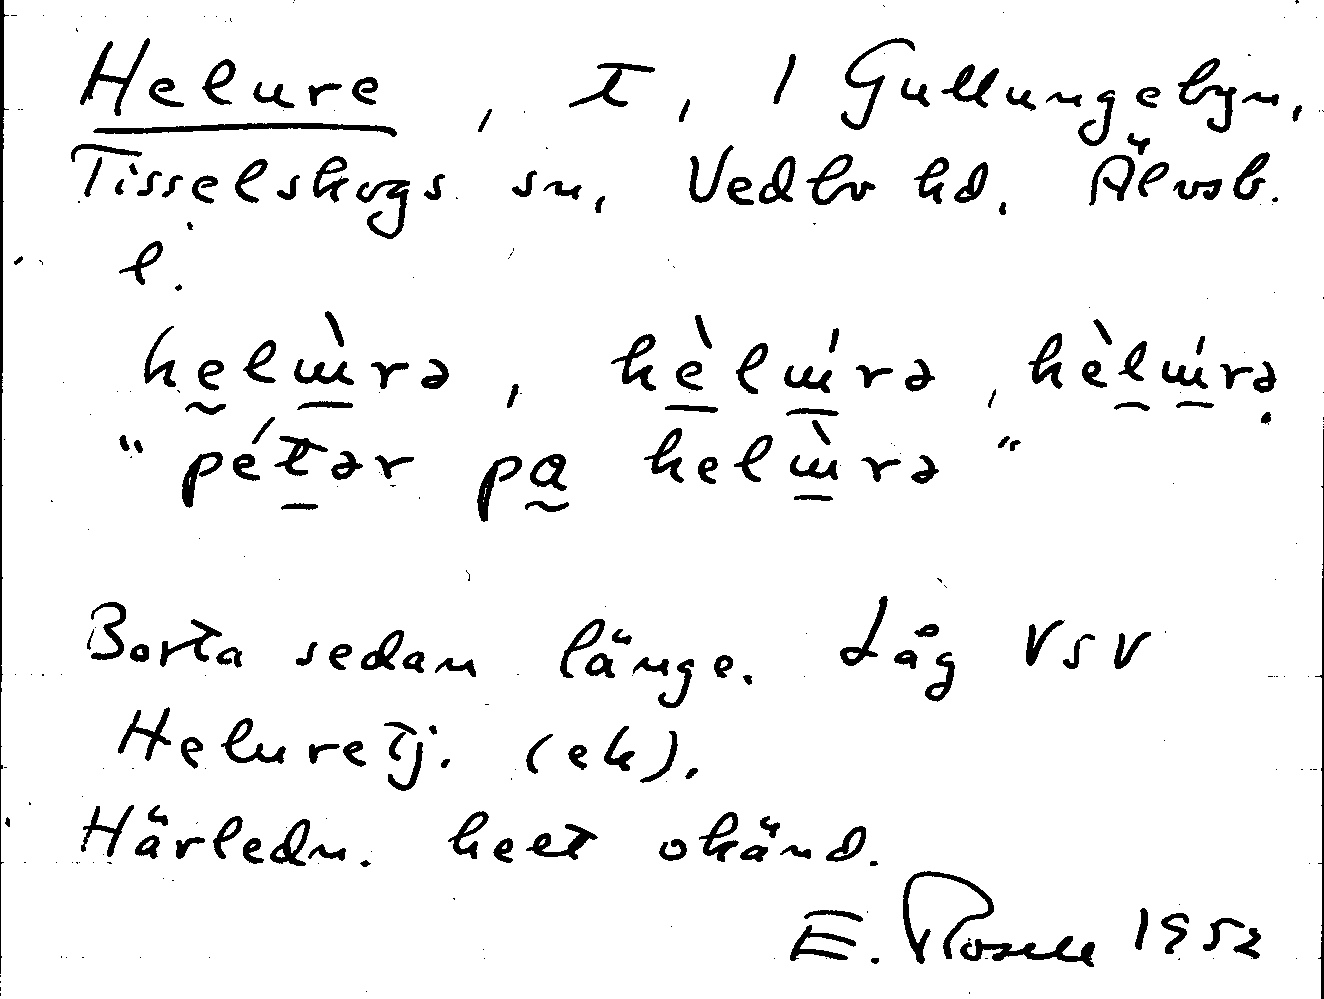 Helure, t, 1 Gullungebyn,
Tisselskogs sn, Vedbo hd. Älvsb.
l.
helɯ̀rə, hèlɯ́rə, hèlɯ́rə.
"pétər pa helɯ̀rə"
Borta sedan länge. Låg VSV
Heluretj. (ek).
Härledn. helt okänd.
E. Rosell 1952